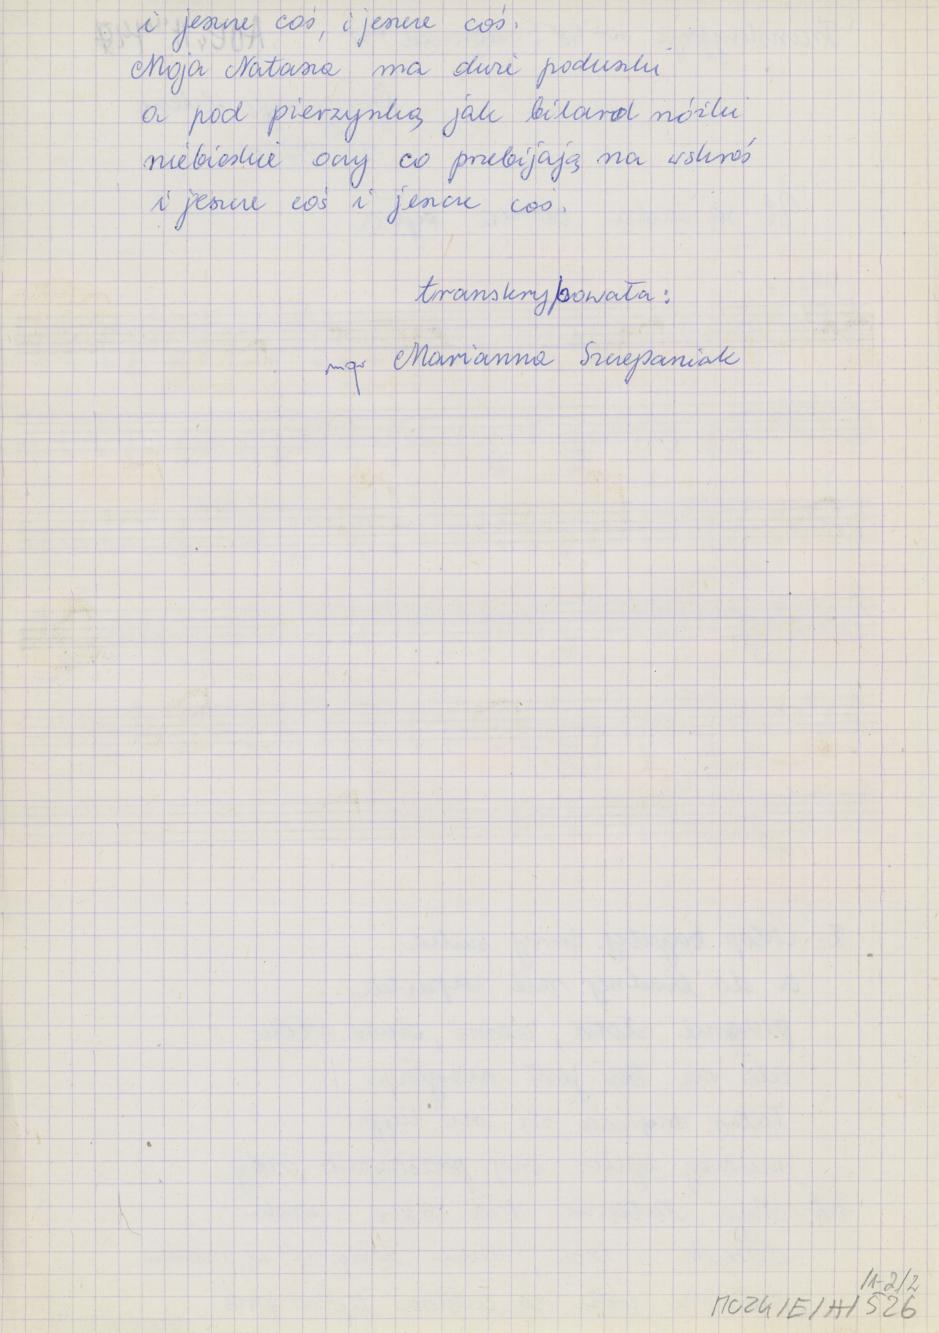 i jeszcze coś, i jeszcze coś.
Moja Natasza ma duże poduszki
a pod pierzynką jak bilard nóżki
niebieskie oczy co przebijają na wskroś
i jeszcze coś i jeszcze coś.
transkrybowała:
mgr Marianna Szczepaniak
/1-2/2
MOZK/E/H/526